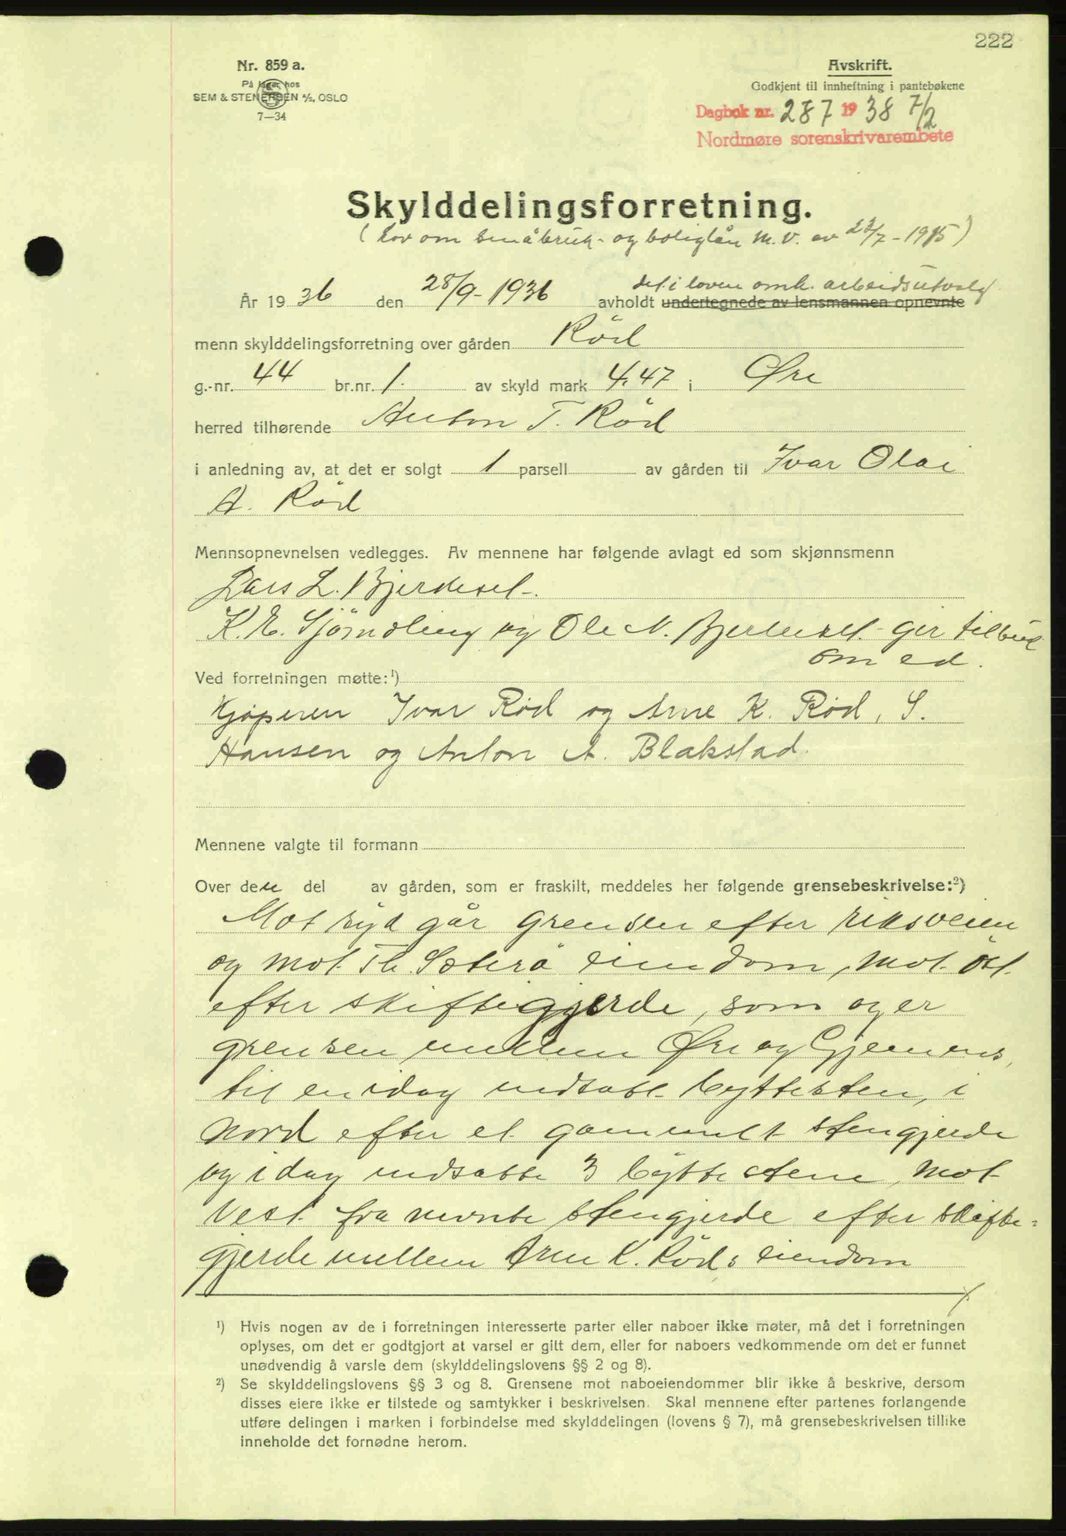 222
Nr. 859 a.
På lager hos
SEM & STENERSEN A/S, OSLO
7—34
Avskrift.
Godkjent til innheftning i pantebøkene
Dagbok nr. 287 1938 7/2
Nordmøre sorenskrivarembete
Skylddelingsforretning.
(Lov om småbruk- og boliglån m.v. av 23/7-1915)
det i loven omh. arbeidsutvalg
År 1936 den 28/9-1936 avholdt undertegnede av lensmannen opnevnte
menn skylddelingsforretning over gården Röd
g.-nr. 44 br.nr. 1. av skyld mark 4,47 i Øre
herred tilhørende Anton T. Röd
i anledning av, at det er solgt 1 parsell av gården til Ivar Olai
A. Röd
Mennsopnevnelsen vedlegges. Av mennene har følgende avlagt ed som skjønnsmenn
Lars L. Bjerkeset.
K. E. og Ole N. Bjerkeset gir tilbud
om ed.
Ved forretningen møtte:¹)
Kjøperen Ivar Röd og Arne K. Röd, S.
Hansen og Anton A. Blakstad.
Mennene valgte til formann
Over den del av gården, som er fraskilt, meddeles her følgende grensebeskrivelse:²)
Mot syd går grensen efter riksveien
og mot Th. Sæterö eiendom, mot öst
efter skiftegjerde, som og er
grensen mellem Øre og Gjemnes,
til en idag nedsatt byttesten, i
Nord efter et gammelt stengjerde
og idag nedsatte 3 byttestene, mot
Vest fra nevnte stengjerde efter skifte-
gjerde mellem Arne K. Röds eiendom
¹) Hvis nogen av de i forretningen interesserte parter eller naboer ikke møter, må det i forretningen
oplyses, om det er godtgjort at varsel er gitt dem, eller for naboers vedkommende om det er funnet
unødvendig å varsle dem (skylddelingslovens §§ 2 og 8).
²) Se skylddelingslovens §§ 3 og 8. Grensene mot naboeiendommer blir ikke å beskrive, dersom
disses eiere ikke er tilstede og samtykker i beskrivelsen. Skal mennene efter partenes forlangende
utføre delingen i marken i forbindelse med skylddelingen (lovens § 7), må grensebeskrivelsen tillike
inneholde det fornødne herom.